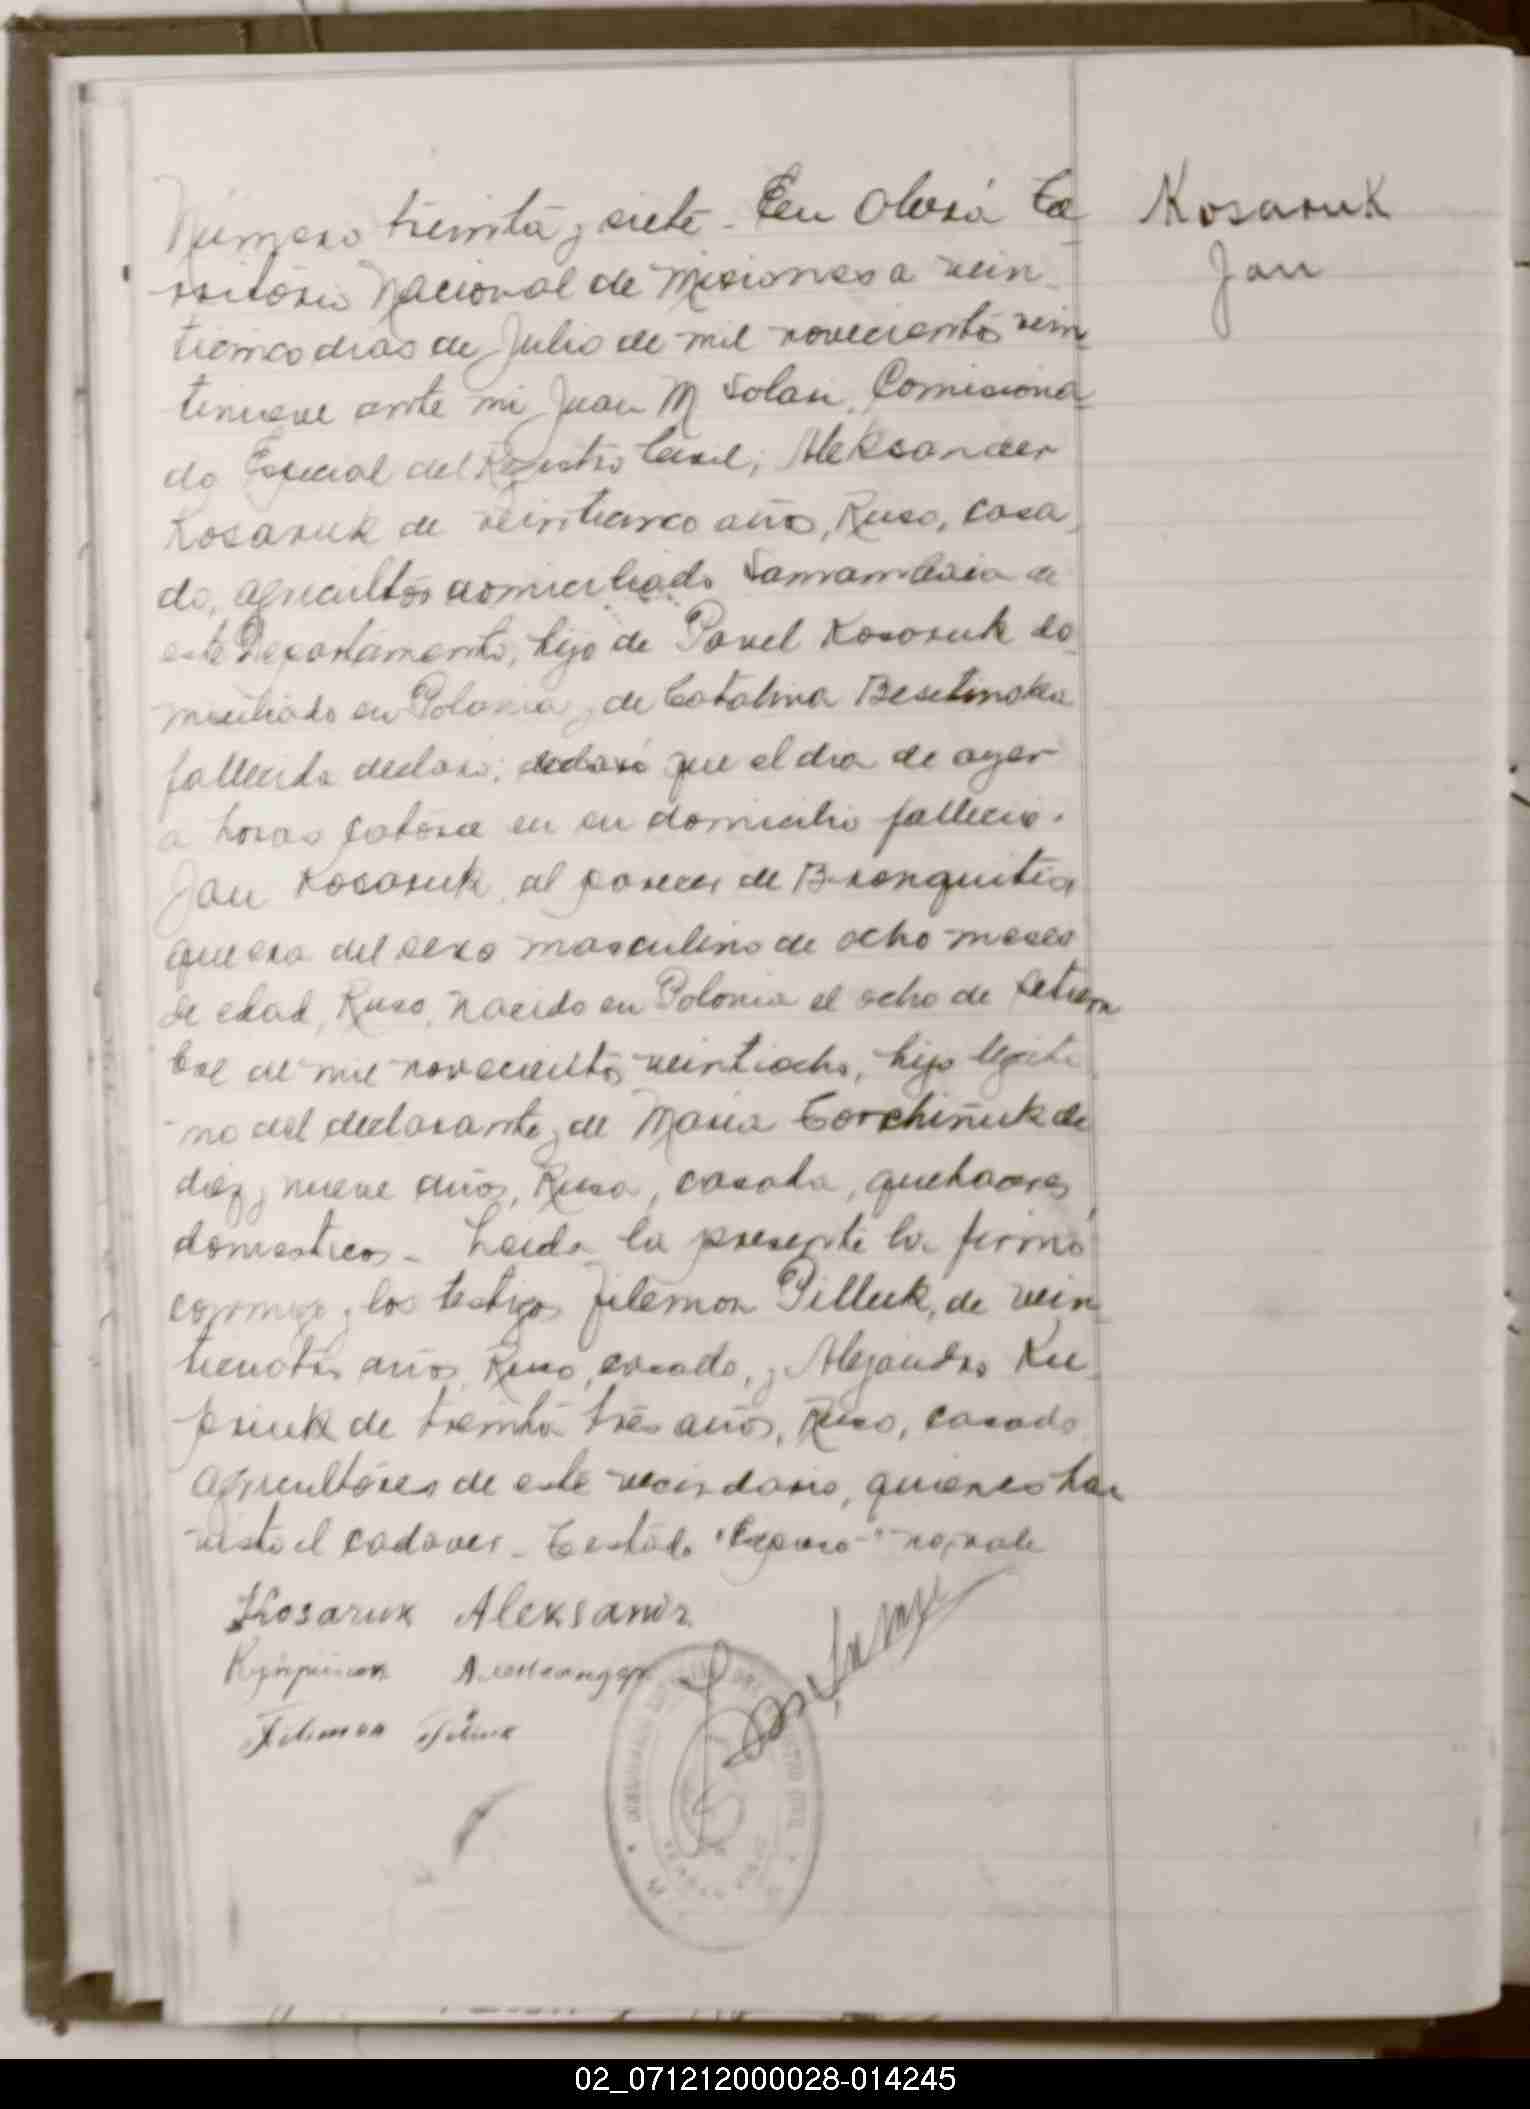 Número treinta y siete - En Oberá Te
Kosaruk
Jan
rritorio Nacional de Misiones a vein
ticinco dias de Julio de mil novecientos vein
tinueve ante mi Juan M Solari, Comisiona
do Especial del Registro Civil, Aleksander
Kosaruk de veinticinco años, Ruso, casa
do, agricultor domiciliado Samambaia de
este Departamento, hijo de Pavel Kosaruk do
miciliado en Polonia y de Catalina
fallecida declaró; declaró que el dia de ayer
a horas catorce en su domicilio falleció
Jan Kosaruk al parecer de Bronquitis
que era del sexo masculino de ocho meses
de edad, Ruso, nacido en Polonia el ocho de Setiem
bre de mil novecientos veintiocho, hijo legiti
mo del declarante y de Maria Torchiñuk de
diez y nueve años, Rusa, casada, quehaceres
domesticos - Leida la presente la firmó
conmigo y los testigos Filemon Pilluk, de vein
años, Ruso, casado, y Alejandro Ku
priuk de treinta tres años, Ruso, casado
agricultores de este vecindario, quienes han
visto el cadaver - Testado no vale
Kosaruk Aleksandr
02_071212000028-014245